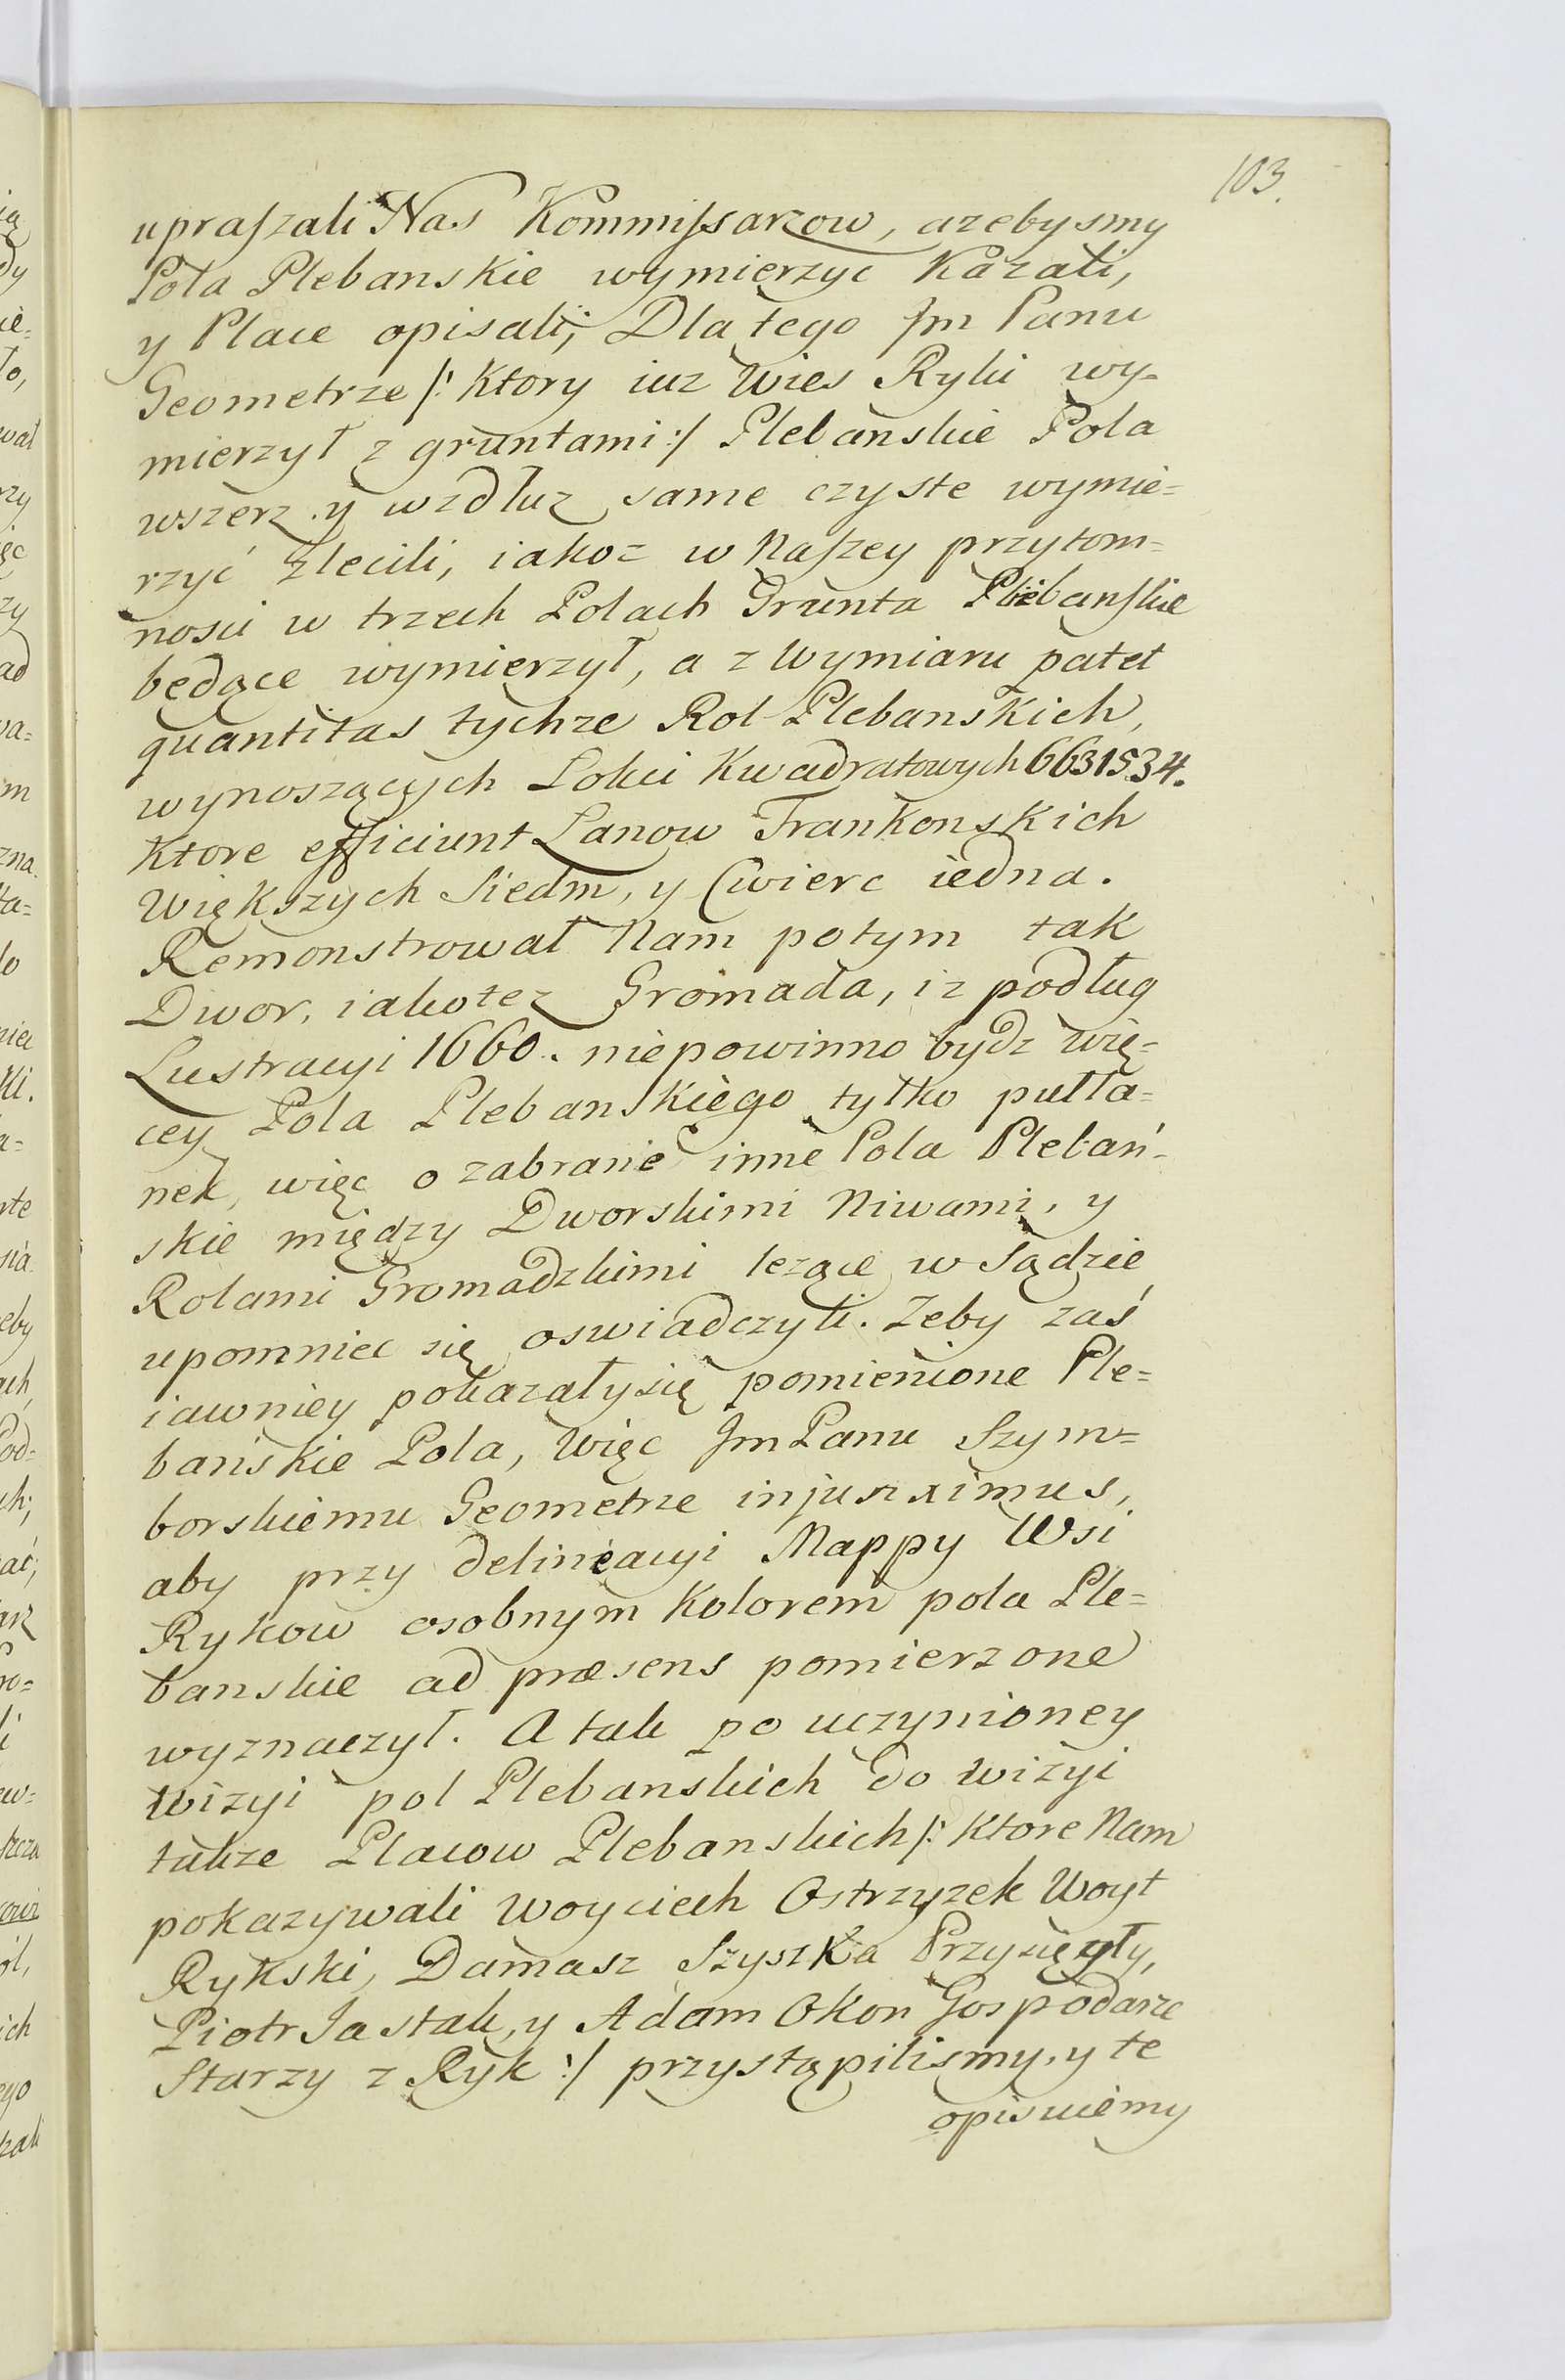 103.
upraszali Nas Kommissarzow, azebysmy
Pola Plebanskie wymierzyc Kazali,
y Place opisali; Dla tego Jm Panu
Geometrze /: Ktory iuz Wies Ryki wy-
mierzył z gruntami :/ Plebanskie Pola
wszerz y wzdłuz same czyste wymie=
rzyć zlecili, iakoz w Naszey przytom=
nosci w trzech Polach Grunta Plebanskie
będące wymierzył, a z Wymiaru patet
quantitas tychze Rol Plebanskich,
wynoszących Lokci Kwadratowych 6631534.
Ktore efficiunt Lanow Frankonskich
Większych Siedm, y Cwierc iedna.
Remonstrował Nam potym tak
Dwor, iakotez Gromada, iz podług
Lustracyi 1660. niepowinno bydz wię=
cey Pola Plebanskiego tylko pułła=
nek, więc o zabranie inne Pola Plebań-
skie między Dworskimi Niwami, y
Rolami Gromadzkimi lezące w Sądzie
upomniec się oswiadczyli. Zeby zaś
iawniey pokazały się pomienione Ple=
banskie Pola, Więc Jm Panu Szym=
borskiemu Geometrze injunximus,
aby przy delineacyi Mappy Wsi
Rykow osobnym Kolorem pola Ple=
banskie ad præsens pomierzone
wyznaczył. A tak po uczynioney
wizyi pol Plebanskich do wizyi
takze Placow Plebanskich /: Ktore Nam
pokazywali Woyciech Ostrzyzek Woyt
Rykski, Damasz Szyszka Przysięzły,
Piotr Jastak, y Adam Okon Gospodarze
Starzy z Ryk :/ przystąpilismy, y te
opisuiemy